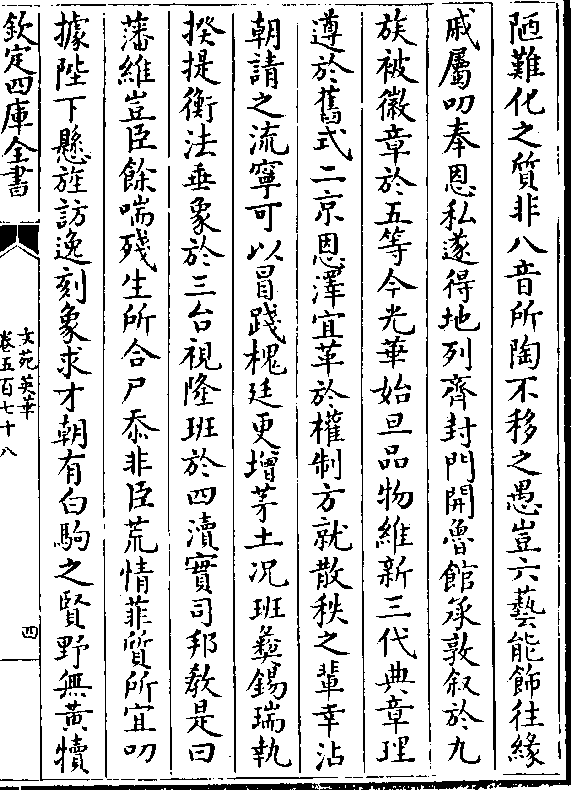 陋難化之質非八音所陶不移之愚豈六藝能飾往緣
戚屬叨奉恩私遂得地列齊封門開魯館承敦叙於九
族被徽章於五等今光華始旦品物維新三代典章理
遵於舊式二京恩澤宜革於權制方就散秩之輩幸沾
朝請之流寧可以冒踐槐廷更增茅土况班彝錫瑞執
揆提衡法垂象於三台視隆班於四瀆實司邦教是曰
藩維豈臣餘喘殘生所合尸忝非臣荒情菲質所宜叨
據陛下懸旌訪逸刻象求才朝有白駒之賢野無黃犢
欽定四庫全書
文苑英華
卷五百七十八
四